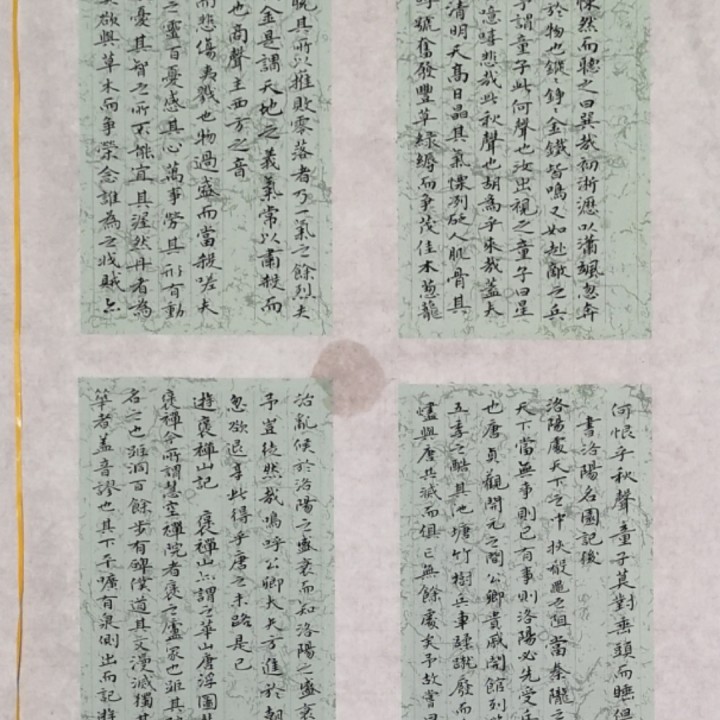 悚然而聽之曰異哉初淅瀝以瀟颯忽奔
於物也鏦〻錚〻金鐵皆鳴又如赴敵之兵
予謂童子此何聲也汝出視之童子曰星
噫嘻悲哉此秋聲也胡為乎來哉蓋夫
清明天高日晶其氣慄冽砭人肌骨其
呼號奮發豐草綠縟而爭茂佳木葱蘢
脫其所以摧敗零落者乃一氣之餘烈夫
金是謂天地之義氣常以肅殺而
也商聲主西方之音
而悲傷夷戮也物過盛而當殺嗟夫
之靈百憂感其心萬事勞其形有動
憂其智之所不能宜其渥然丹者為
奚欲與草木而爭榮念誰為之戕賊亦
何恨乎秋聲童子莫對垂頭而睡但
書洛陽名園記後
洛陽處天下之中挾殽黽之阻當秦隴之
天下當無事則已有事則洛陽必先受兵
也唐貞觀開元之間公卿貴戚開館列
五季之酷其池塘竹樹兵車蹂蹴廢而
燼與唐共滅而俱亡無餘處矣予故嘗曰
治亂候於洛陽之盛衰而知洛陽之盛衰
予豈徒然哉嗚呼公卿大夫方進於朝
忽欲退享此得乎唐之末路是已
遊褒禪山記 褒禪山亦謂之華山唐浮圖
褒禪今所謂慧空禪院者褒之廬冢也距其
名之也距洞百餘步有碑僕道其文漫滅獨其
華者蓋音謬也其下平曠有泉側出而記遊